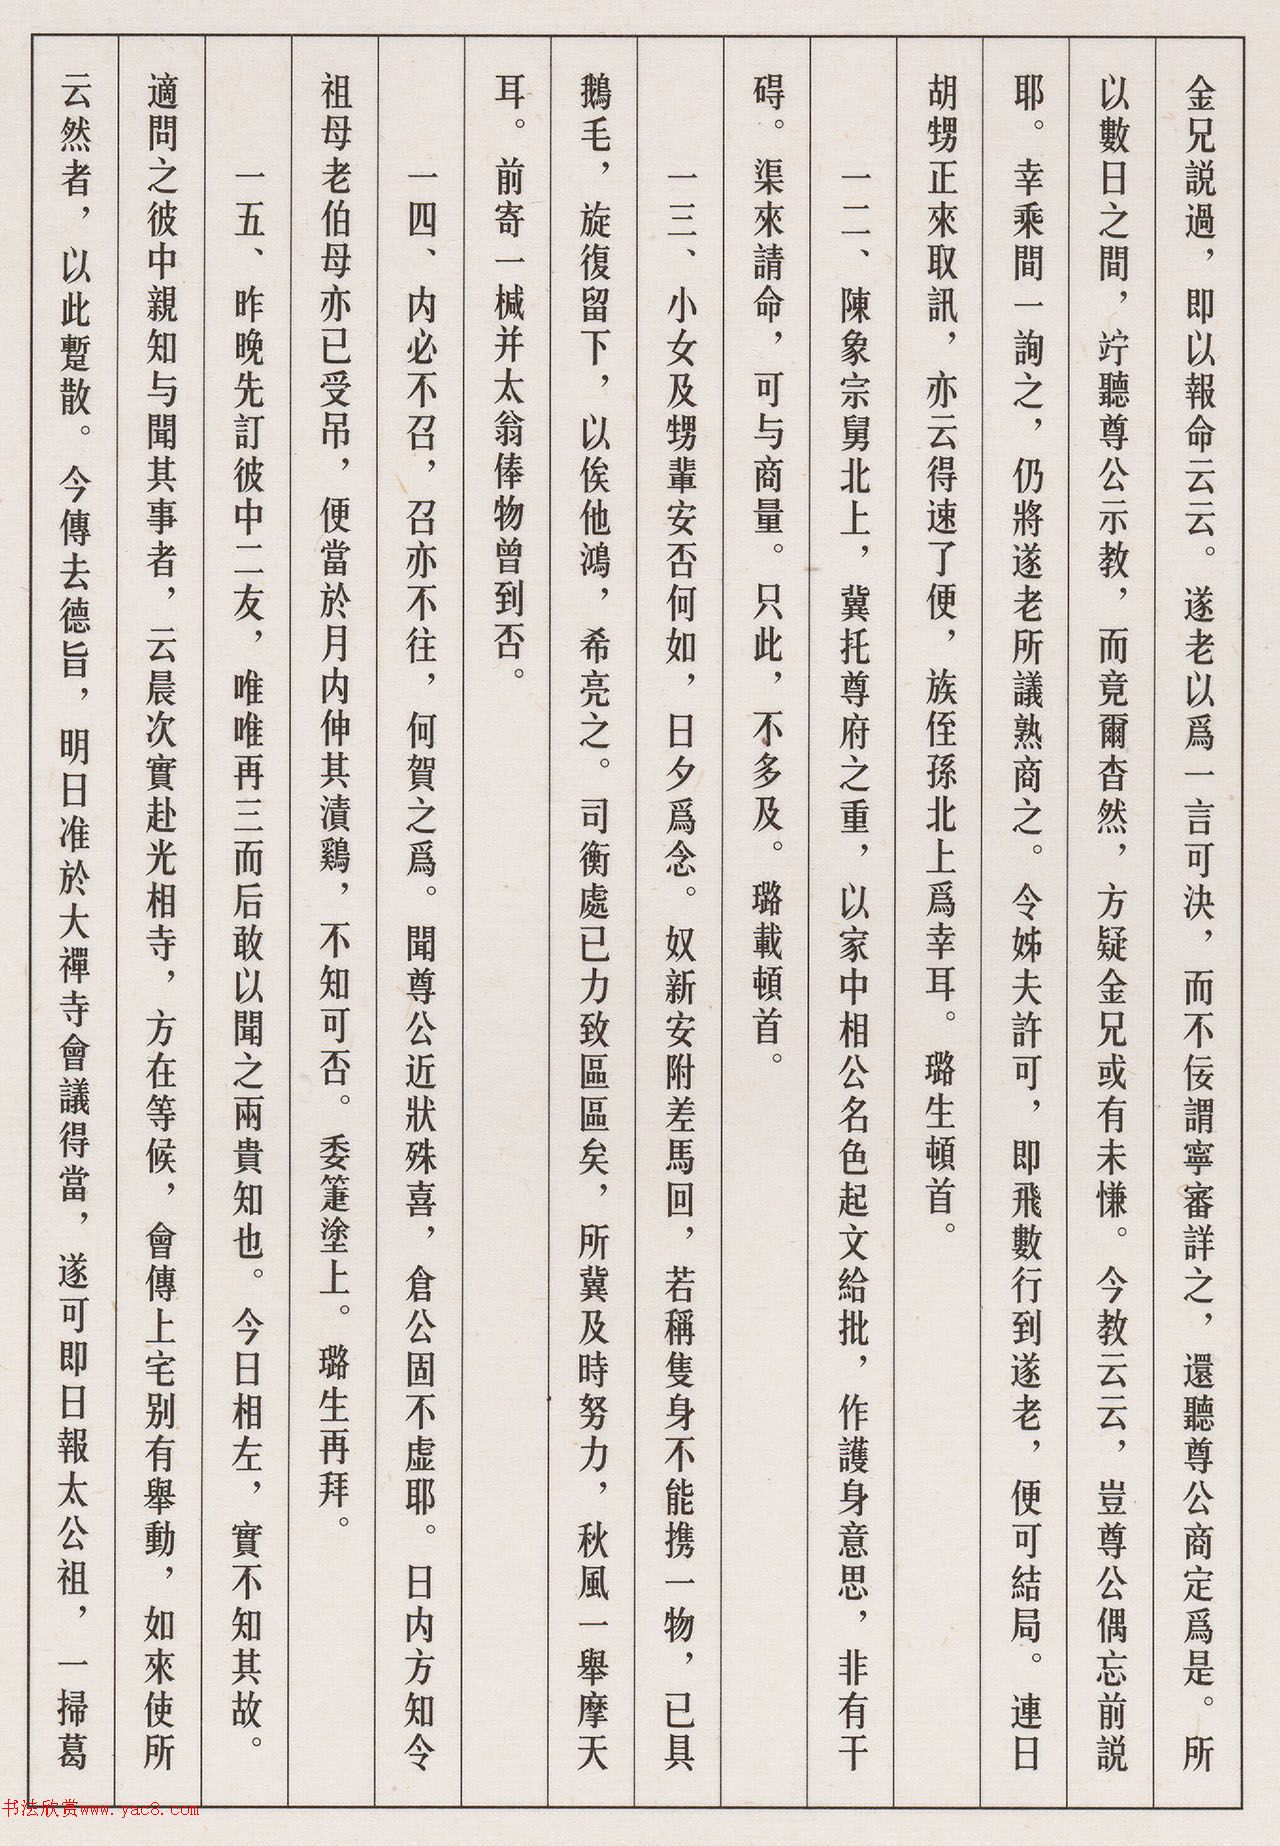 金兄説過，即以報命云云。遂老以爲一言可決，而不佞謂寧審詳之，還聽尊公商定爲是。所
以數日之間，竚聽尊公示教，而竟爾杳然，方疑金兄或有未慊。今教云云，豈尊公偶忘前説
耶。幸乘間一詢之，仍將遂老所議熟商之。令姊夫許可，即飛數行到遂老，便可結局。連日
胡甥正來取訊，亦云得速了便，族侄孫北上爲幸耳。璐生頓首。
一二、陳象宗舅北上，冀托尊府之重，以家中相公名色起文給批，作護身意思，非有干
碍。渠來請命，可与商量。只此，不多及。璐載頓首。
一三、小女及甥輩安否何如，日夕爲念。奴新安附差馬回，若稱隻身不能携一物，已具
鵝毛，旋復留下，以俟他鴻，希亮之。司衡處已力致區區矣，所冀及時努力，秋風一舉摩天
耳。前寄一槭并太翁俸物曾到否。
一四、内必不召，召亦不往，何賀之爲。聞尊公近狀殊喜，倉公固不虚耶。日内方知令
祖母老伯母亦已受吊，便當於月内伸其漬鷄，不知可否。委箑塗上。璐生再拜。
一五、昨晚先訂彼中二友，唯唯再三而后敢以聞之兩貴知也。今日相左，實不知其故。
適問之彼中親知与聞其事者，云晨次實赴光相寺，方在等候，會傳上宅别有舉動，如來使所
云然者，以此暫散。今傳去德旨，明日准於大禪寺會議得當，遂可即日報太公祖，一掃葛
书法欣赏www.yac8.com